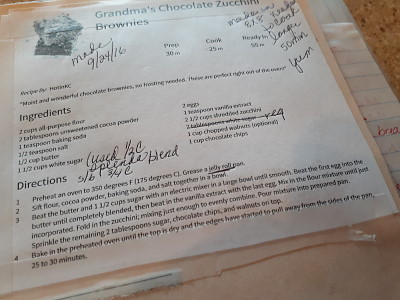 Grandma's Chocolate Zucchini
Brownies
made
9/24/16
made in
Prep
30 m
Cook
25 m
Ready In
55 m
yum
Recipe By: HotinKC
"Moist and wonderful chocolate brownies, no frosting needed. These are perfect right out of the oven!"
Ingredients
2 cups all-purpose flour
2 tablespoons unsweetened cocoa powder
1 teaspoon baking soda
1/2 teaspoon salt
1/2 cup butter
1 1/2 cups white sugar (used 1/2 C
splenda blend
3/4 C
2 eggs
1 teaspoon vanilla extract
2 1/2 cups shredded zucchini
2 tablespoons white sugar
1 cup chopped walnuts (optional)
1 cup chocolate chips
Directions
1 Preheat an oven to 350 degrees F (175 degrees C). Grease a jelly roll pan.
Sift flour, cocoa powder, baking soda, and salt together in a bowl.
2 Beat the butter and 1 1/2 cups sugar with an electric mixer in a large bowl until smooth. Beat the first egg into the
butter until completely blended, then beat in the vanilla extract with the last egg. Mix in the flour mixture until just
incorporated. Fold in the zucchini; mixing just enough to evenly combine. Pour mixture into prepared pan.
Sprinkle the remaining 2 tablespoons sugar, chocolate chips, and walnuts on top.
4 Bake in the preheated oven until the top is dry and the edges have started to pull away from the sides of the pan,
25 to 30 minutes.